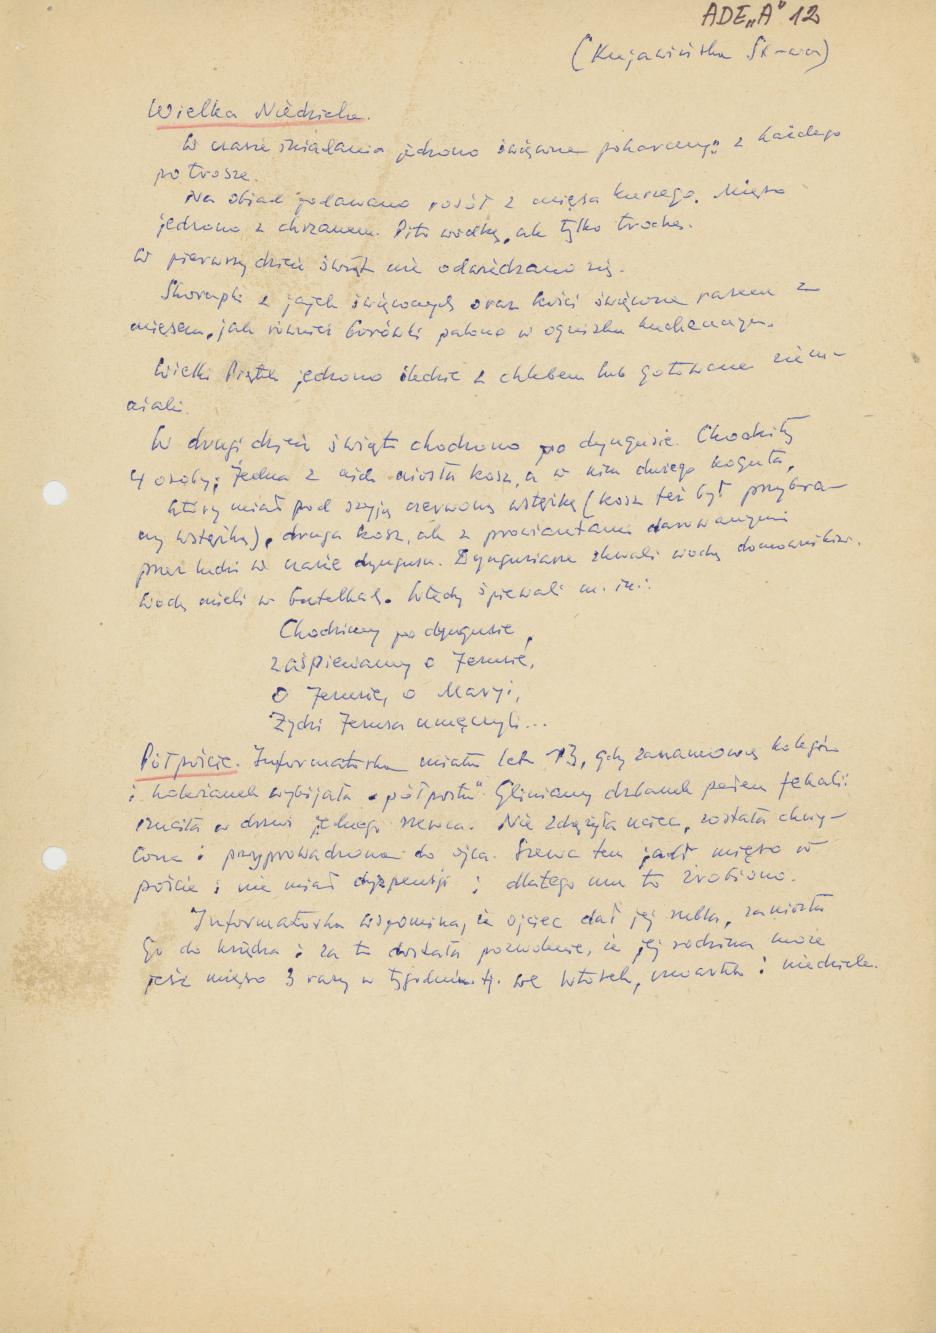 ADE „A" 12
(Kujawińska St-wa)
Wielka Niedziela.
W czasie śniadania jedzono święcone pokarmy; z każdego
po trosze.
Na obiad podawano rosół z mięsa kurzego. Mięso
jedzono z chrzanem. Pito wódkę, ale tylko trochę.
W pierwszy dzień świąt nie odwiedzano się.
Skorupki z jajek święconych oraz kości święcone razem z
mięsem, jak również borówki palono w ognisku kuchennym.
Wielki Piątek jedzono śledzie z chlebem lub gotowane ziem-
niaki.
W drugi dzień świąt chodzono po dyngusie. Chodziły
4 osoby; jedna z nich niosła kosz, a w nim żywego koguta,
który miał pod szyją czerwoną wstążkę (kosz też był przybra-
ny wstążką), druga kosz, ale z prowiantami darowanymi
przez ludzi w czasie dyngusu. Dyngusiarze zlewali wodą domowników.
Wodę mieli w butelkach. Wtedy śpiewali m. in.:
Chodzimy po dyngusie,
zaśpiewamy o Jezusie,
O Jezusie, o Maryi,
Żydzi Jezusa umęczyli...
Półpoście. Informatorka miała lat 13, gdy za namową kolegów
i koleżanek wybijała „półpostu". Gliniany dzbanek pełen fekalii
rzuciła w drzwi jednego szewca. Nie zdążyła uciec, została chwy-
cona i przyprowadzona do ojca. Szewc ten jadł mięso w
poście i nie miał dyspensji i dlatego mu to zrobiono.
Informatorka wspomina, że ojciec dał jej rubla, zaniosła
go do księdza i za to dostała pozwolenie, że jej rodzina może
jeść mięso 3 razy w tygodniu tj. we wtorek, czwartek i niedzielę.